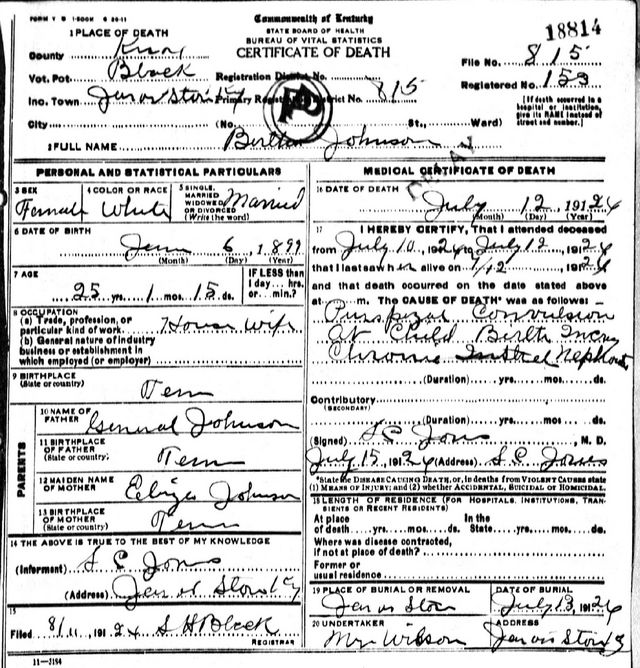 FORM V S 1-500M 6-20-11
Commonwealth of Kentucky
STATE BOARD OF HEALTH
BUREAU OF VITAL STATISTICS
CERTIFICATE OF DEATH
18814
1 PLACE OF DEATH
County Knox
Vot. Pct. Black
Inc. Town Jarvis Store Ky
City
Registration District No.
Primary Registration District No. 815
(No. St., Ward)
File No. 815
Registered No. 153
[If death occurred in a hospital or institution, give its NAME instead of street and number.]
2 FULL NAME Bertha Johnson
PERSONAL AND STATISTICAL PARTICULARS
3 SEX Female
4 COLOR OR RACE White
5 SINGLE, MARRIED WIDOWED OR DIVORCED (Write the word) Married
6 DATE OF BIRTH
6, 1899
(Month) (Day) (Year)
7 AGE
25 yrs. 1 mos. 15 ds.
IF LESS than 1 day... hrs. or... min.?
8 OCCUPATION
(a) Trade, profession, or particular kind of work. House Wife
(b) General nature of industry business or establishment in which employed (or employer)
9 BIRTHPLACE
(State or country) Tenn
PARENTS
10 NAME OF FATHER General Johnson
11 BIRTHPLACE OF FATHER
(State or country) Tenn
12 MAIDEN NAME OF MOTHER Johnson
13 BIRTHPLACE OF MOTHER
(State or country) Tenn
14 THE ABOVE IS TRUE TO THE BEST OF MY KNOWLEDGE
(Informent) S C Jones
(Address) Jarvis Store Ky
15
Filed 8/11, 1924 S H Black
REGISTRAR
11-3184
MEDICAL CERTIFICATE OF DEATH
16 DATE OF DEATH
July 12, 19124
(Month) (Day) (Year)
17 I HEREBY CERTIFY, That I attended deceased
from July 10, 1924 to July 12, 19124
that I last saw her alive on 12, 19124
and that death occurred on the date stated above
at m. The CAUSE OF DEATH* was as follows:
Convulsion
At Child Birth
Chronic
(Duration) yrs. mos. ds.
Contributory
(SECONDARY)
(Duration) yrs. mos. ds.
(Signed) S C Jones, M. D.
July 15, 19124 (Address) S C Jones
*State the DISEASE CAUSING DEATH, or, in deaths from VIOLENT CAUSES state (1) MEANS OF INJURY; and (2) whether ACCIDENTAL, SUICIDAL OR HOMICIDAL.
18 LENGTH OF RESIDENCE (FOR HOSPITALS, INSTITUTIONS, TRANSIENTS OR RECENT RESIDENTS)
At place of death yrs. mos. ds.
In the State yrs. mos. ds.
Where was disease contracted, if not at place of death?
Former or usual residence
19 PLACE OF BURIAL OR REMOVAL Jarvis Store
DATE OF BURIAL July 13, 19124
20 UNDERTAKER Wilson
ADDRESS Jarvis Store Ky